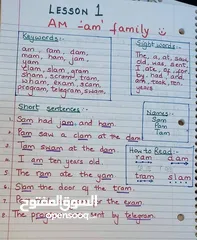 LESSON 1
AM -am' family
Keywords:-
am, ram, dam,
mam, ham, jam,
yam
clam, slam, gram
sham, scram, tram,
wham, exam, scam,
program, telegram, swam.
Sight words:-
The, a, at, saw
old, was, sent,
I, ate, of, for
by, had, and
am, took, ten,
years
Short sentences:-
Names:-
Sam
Pam
Tam
1. Sam had jam and ham.
2. Pam saw a clam at the dam.
3. Tam swam at the dam.
4. I am ten years old.
How to Read:-
ram dam
tram slam
5. The ram ate the yam.
6. Slam the door of the tram.
7. for the exam.
8. The sent by telegram.
السوق المفتوح
opensooq.com